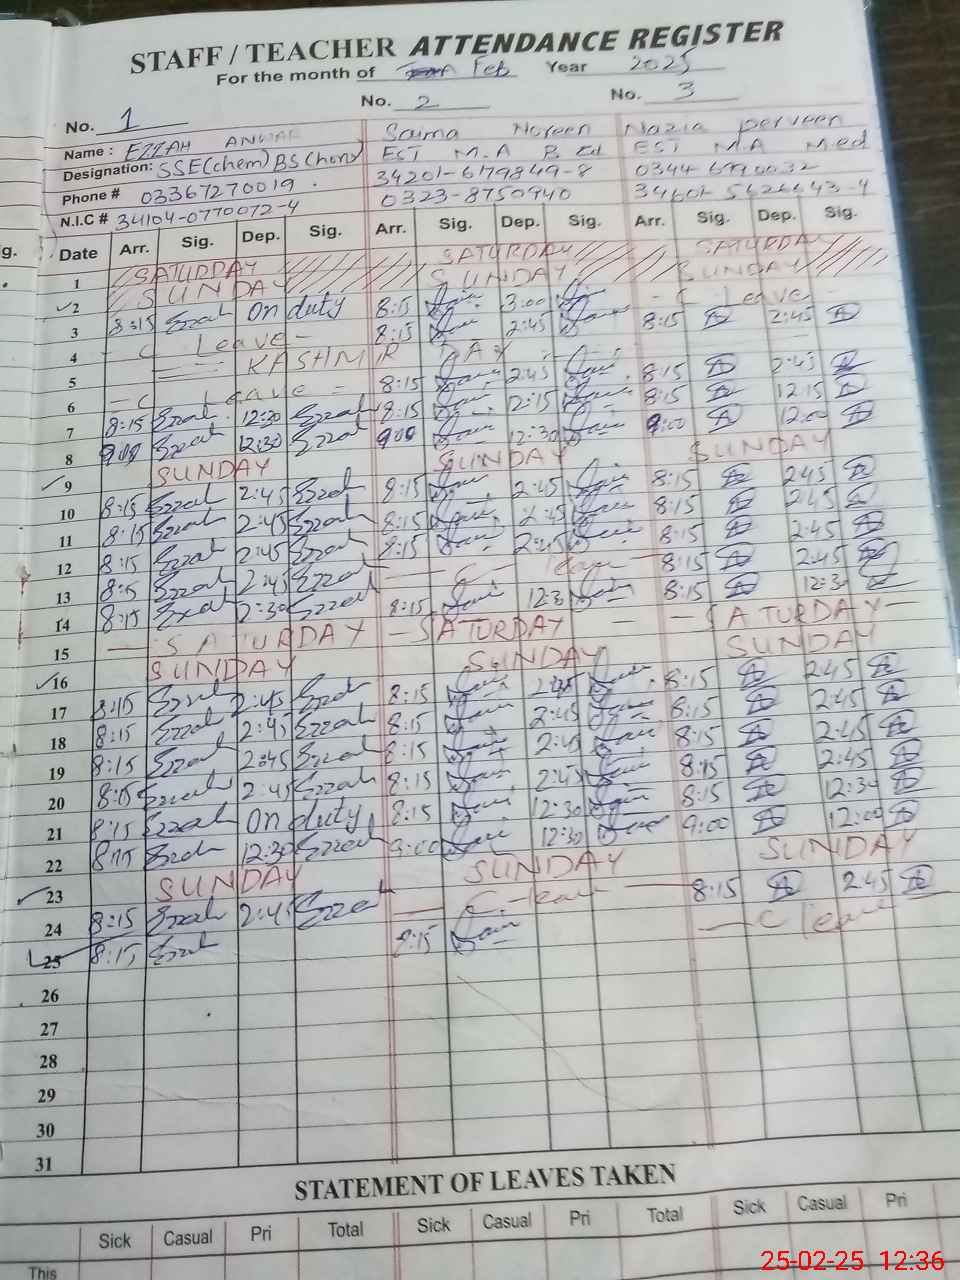 STAFF / TEACHER ATTENDANCE REGISTER
For the month of Feb Year 2025
No. 1 No. 2 No. 3
Name : EZZAH ANWAR Saima Noreen Nazia perveen
Designation: SSE(chem) BS(hons) EST M.A B Ed EST M.A Med
Phone # 03367270019 . 34201-6179849-8 0344 6990032
N.I.C # 34104-0770072-4 0323-8750940
g. Date Arr. Sig. Dep. Sig. Arr. Sig. Dep. Sig. Arr. Sig. Dep. Sig.
1 SATURDAY SATURDAY SATURDAY
2 SUNDAY SUNDAY SUNDAY
3 8:15 Ezzah On duty 8:15 3:00 - C Leave -
4 - C Leave - 8:15 2:45 8:15 2:45
5 KASHMIR DAY
6 - C Leave - 8:15 2:45 8:15 2:45
7 8:15 Ezzah 12:30 Ezzah 8:15 12:15 8:15 12:15
8 9:00 Ezzah 12:30 Ezzah 9:00 12:30 9:00 12:00
9 SUNDAY SUNDAY SUNDAY
10 8:15 Ezzah 2:45 Ezzah 8:15 2:45 8:15 2:45
11 8:15 Ezzah 2:45 Ezzah 8:15 2:45 8:15 2:45
12 8:15 Ezzah 2:45 Ezzah 8:15 2:45 8:15 2:45
13 8:15 Ezzah 2:45 Ezzah — C leave — 8:15 2:45
14 8:15 Ezzah 2:30 Ezzah 8:15 12:3 8:15 12:30
15 — SATURDAY — SATURDAY — — SATURDAY —
16 SUNDAY SUNDAY SUNDAY
17 8:15 Ezzah 2:45 Ezzah 8:15 2:45 8:15 2:45
18 8:15 Ezzah 2:45 Ezzah 8:15 2:45 8:15 2:45
19 8:15 Ezzah 2:45 Ezzah 8:15 2:45 8:15 2:45
20 8:15 Ezzah 2:45 Ezzah 8:15 2:45 8:15 2:45
21 8:15 Ezzah On duty 8:15 12:30 8:15 12:30
22 8:15 Ezzah 12:30 Ezzah 9:00 12:30 9:00 12:00
23 SUNDAY SUNDAY SUNDAY
24 8:15 Ezzah 2:45 Ezzah — C-leave — 8:15 2:45
25 8:15 Ezzah 8:15 — C leave
26
27
28
29
30
31
STATEMENT OF LEAVES TAKEN
Sick Casual Pri Total Sick Casual Pri Total Sick Casual Pri
This
25-02-25 12:36